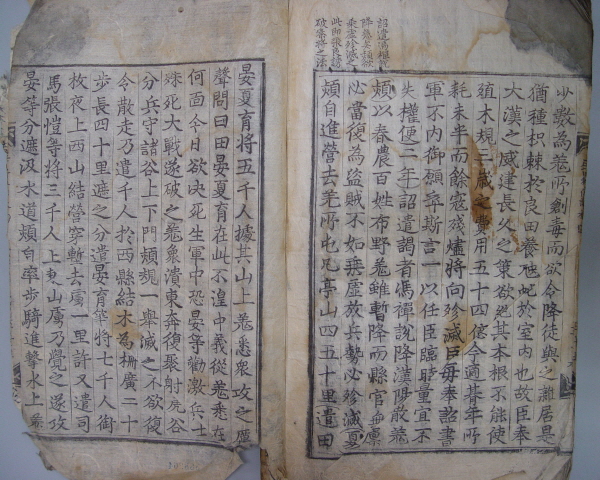 詔遣馮禪說
破秦將之法
少數為羌所創毒而欲令降徒與之雜居是
猶種枳棘於良田養虺蛇於室内也故臣奉
大漢之威建長久之策欲絶其本根不能使
殖本規三歲之費用五十四億今適朞年所
耗未半而餘寇殘燼將向殄滅臣每奉詔書
軍不内御願卒斯言一以任臣臨時量宜不
失權便二年詔遣謁者馮禪說降漢陽散羌
熲以春農百姓布野羌雖暫降而縣官無廩
必當復為盜賊不如乗虛放兵勢必殄滅夏
熲自進營去羌所屯凡亭山四五十里遣田
晏夏育將五千人據其山上羌悉衆攻之厲
聲問曰田晏夏育在此不湟中義從羌悉在
何面今日欲决死生軍中恐晏等勸激兵士
殊死大戰遂破之羌衆潰東奔復聚射虎谷
分兵守諸谷上下門熲規一舉滅之不欲復
令散走乃遣千人於西縣結木為柵廣二十
步長四十里遮之分遣晏育等將七千人銜
枚夜上西山結營穿塹去虜一里許又遣司
馬張愷等將三千人上東山虜乃覺之遂攻
晏等分遮汲水道熲自率步騎進擊水上羌